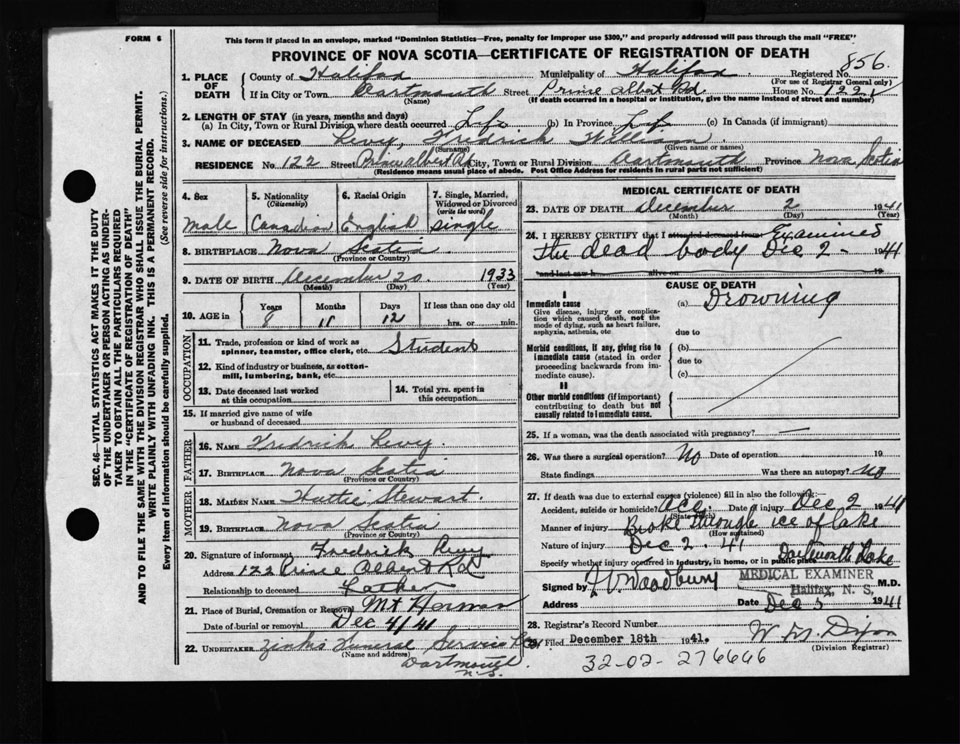 FORM 6
This form if placed in an envelope, marked "Dominion Statistics—Free, penalty for improper use $300," and properly addressed will pass through the mail "FREE"
PROVINCE OF NOVA SCOTIA—CERTIFICATE OF REGISTRATION OF DEATH
856.
1. PLACE OF DEATH County of Halifax Municipality of Halifax Registered No.
(For use of Registrar General only)
If in City or Town Dartmouth Street Prince Albert Rd. House No. 122
(Name) (If death occurred in a hospital or institution, give the name instead of street and number)
2. LENGTH OF STAY (in years, months and days)
(a) In City, Town or Rural Division where death occurred Life (b) In Province Life (c) In Canada (if immigrant)
3. NAME OF DECEASED Levy, Fredrick William
(Surname) (Given name or names)
RESIDENCE No. 122 Street Prince Albert Rd City, Town or Rural Division Dartmouth Province Nova Scotia
(Residence means usual place of abode. Post Office Address for residents in rural parts not sufficient)
4. Sex
Male
5. Nationality
(Citizenship)
Canadian
6. Racial Origin
English
7. Single, Married, Widowed or Divorced
(write the word)
single
8. BIRTHPLACE Nova Scotia
(Province or Country)
9. DATE OF BIRTH December 20 1933
(Month) (Day) (Year)
10. AGE in Years Months Days If less than one day old
11 12 hrs. or min.
OCCUPATION
11. Trade, profession or kind of work as spinner, teamster, office clerk, etc. Student
12. Kind of industry or business, as cotton-mill, lumbering, bank, etc.
13. Date deceased last worked at this occupation
14. Total yrs. spent in this occupation
15. If married give name of wife or husband of deceased
FATHER
16. NAME Fredrick Levy
17. BIRTHPLACE Nova Scotia
(Province or Country)
MOTHER
18. MAIDEN NAME Hattie Stewart.
19. BIRTHPLACE Nova Scotia
(Province or Country)
20. Signature of informant Fredrick Levy
Address 122 Prince Albert Rd
Relationship to deceased Father
21. Place of Burial, Cremation or Removal Mt Hermon
Date of burial or removal Dec 4/41
22. UNDERTAKER Zinks Funeral Service
(Name and address)
Dartmouth N.S.
MEDICAL CERTIFICATE OF DEATH
23. DATE OF DEATH December 2 1941
(Month) (Day) (Year)
24. I HEREBY CERTIFY that I attended deceased from Examined
the dead body Dec 2 - 41
and last saw h alive on 19
CAUSE OF DEATH
I
Immediate cause
Give disease, injury or complication which caused death, not the mode of dying, such as heart failure, asphyxia, asthenia, etc
(a) Drowning
due to
Morbid conditions, if any, giving rise to immediate cause (stated in order proceeding backwards from immediate cause).
(b)
due to
(c)
II
Other morbid conditions (if important) contributing to death but not causally related to immediate cause.
25. If a woman, was the death associated with pregnancy? —
26. Was there a surgical operation? No Date of operation 19
State findings Was there an autopsy? No
27. If death was due to external causes (violence) fill in also the following:—
Accident, suicide or homicide? Acc. Date of injury Dec 2 1941
(State which)
Manner of injury Broke through ice of lake
(How sustained)
Nature of injury Dec 2. 41
Specify whether injury occurred in industry, in home, or in public place Dartmouth Lake
Signed by Woodbury M.D.
MEDICAL EXAMINER
Halifax, N. S.
Address Date Dec 1941
28. Registrar's Record Number
Filed December 18th 1941. W M Dixon
(Division Registrar)
32-02-276646
SEC. 46—VITAL STATISTICS ACT MAKES IT THE DUTY
OF THE UNDERTAKER OR PERSON ACTING AS UNDER-
TAKER TO OBTAIN ALL THE PARTICULARS REQUIRED
IN THE "CERTIFICATE OF REGISTRATION OF DEATH"
AND TO FILE THE SAME WITH THE DIVISION REGISTRAR WHO SHALL ISSUE THE BURIAL PERMIT.
WRITE PLAINLY WITH UNFADING INK. THIS IS A PERMANENT RECORD.
Every item of information should be carefully supplied. (See reverse side for instructions.)